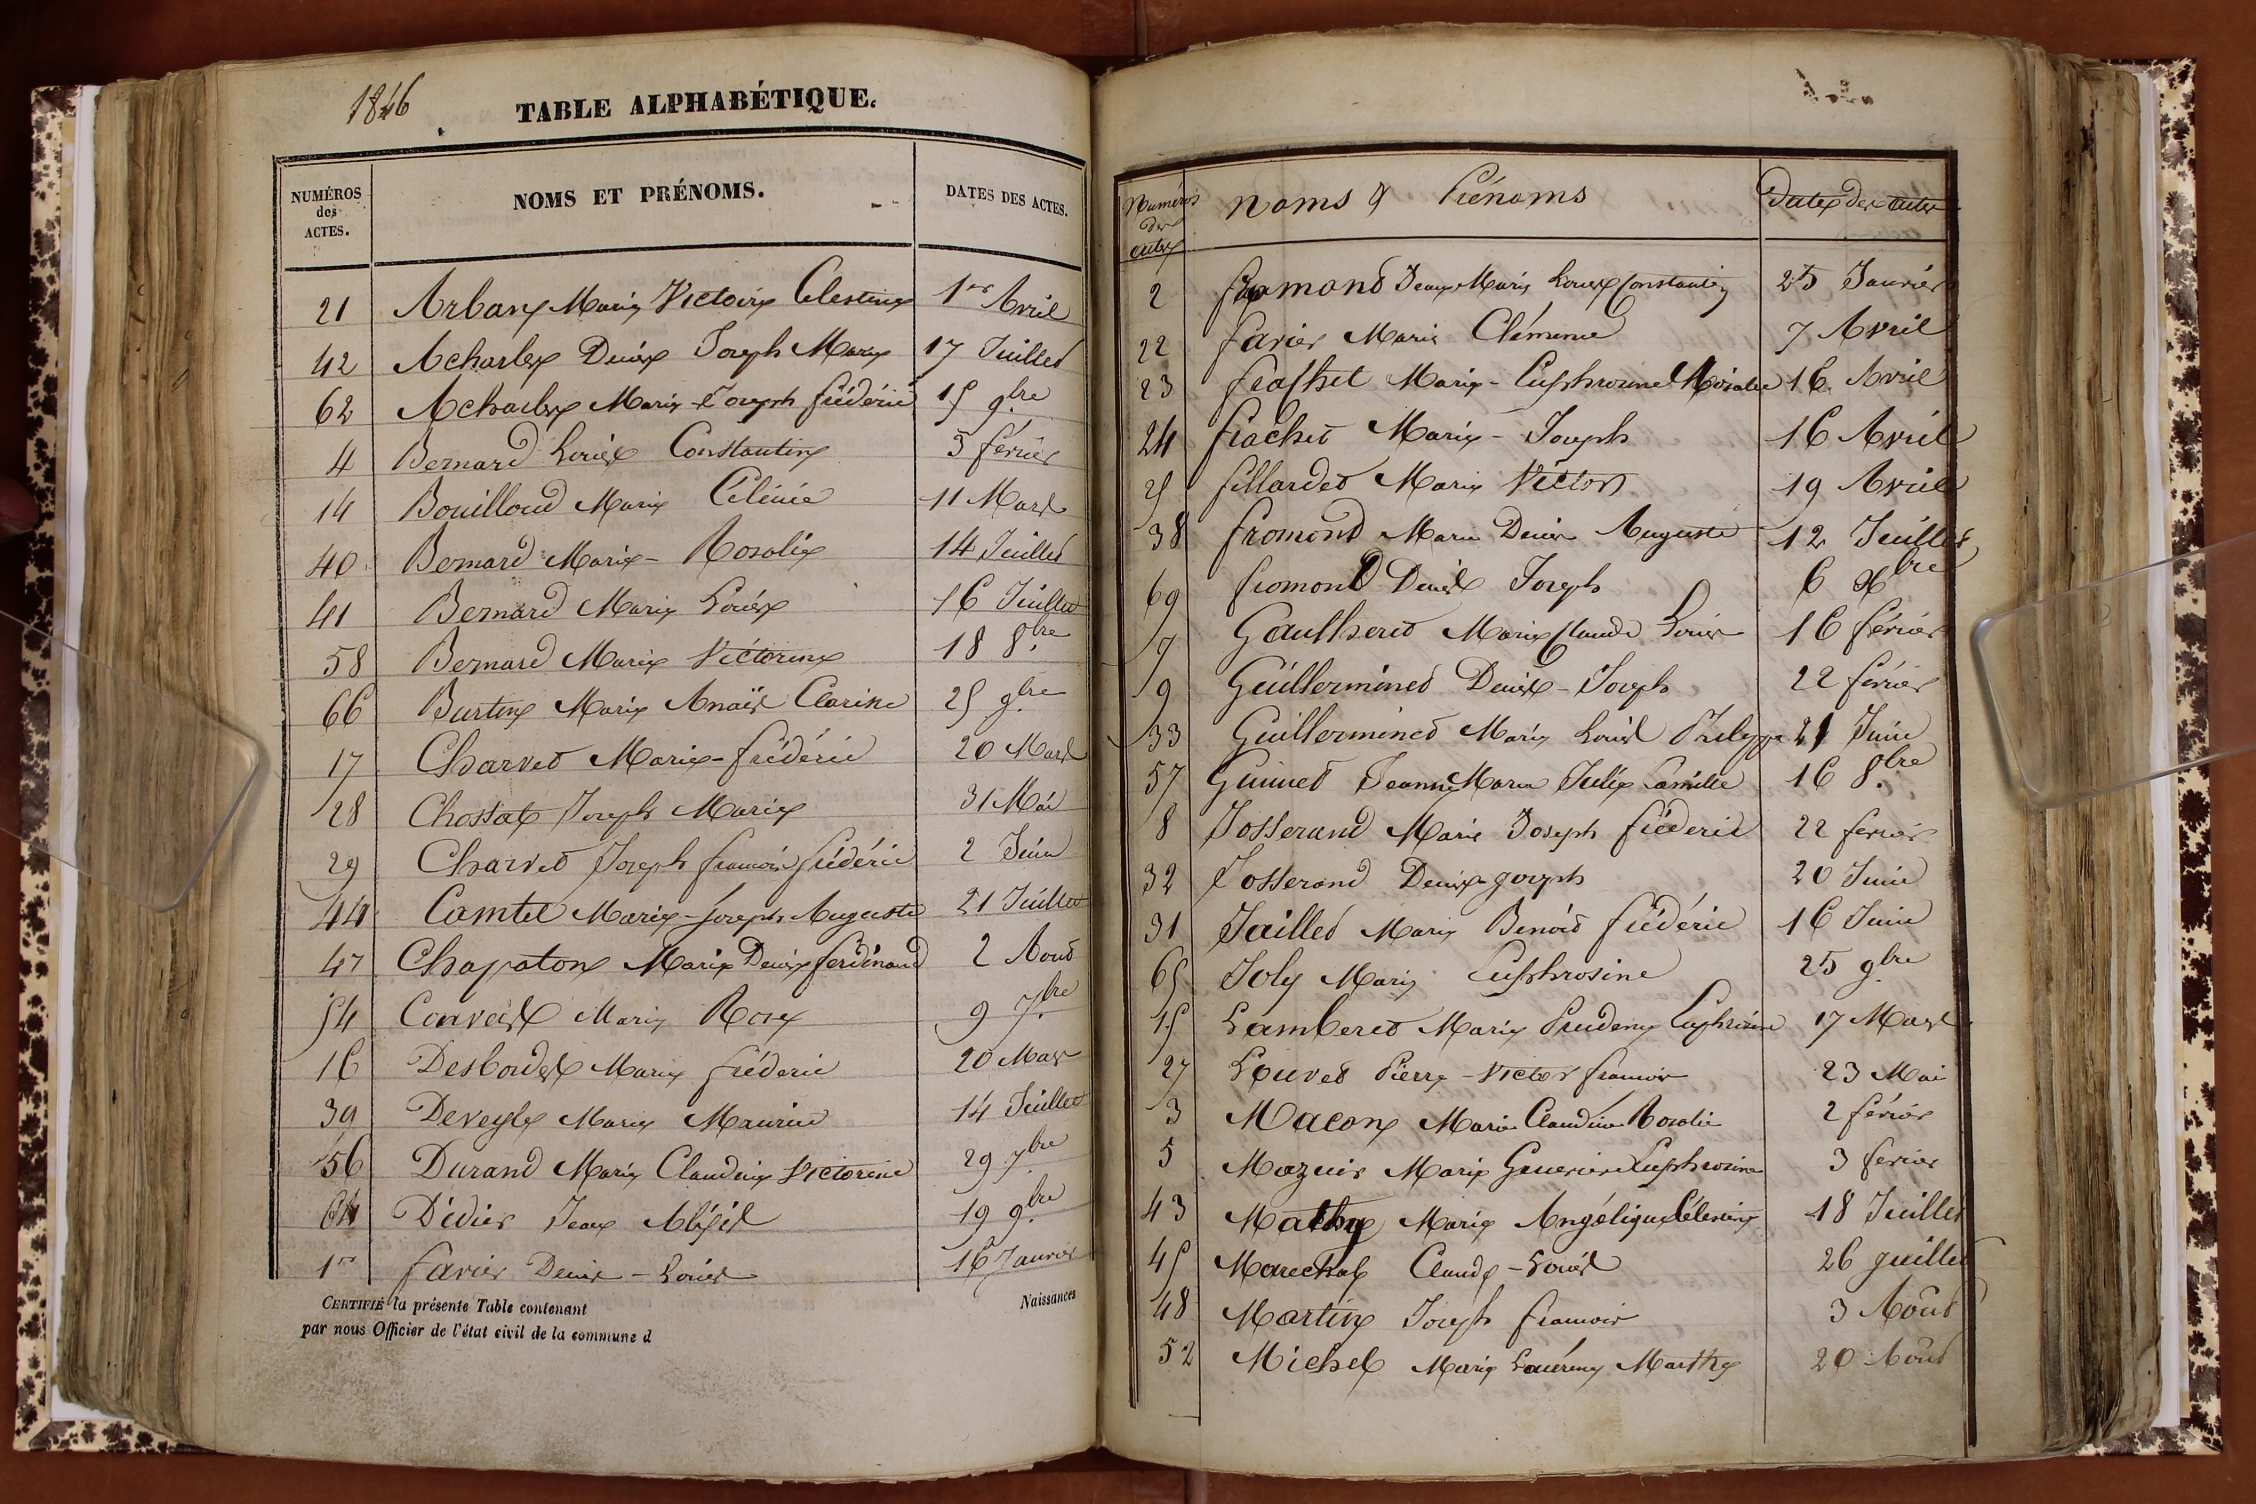 1846
TABLE ALPHABÉTIQUE.
NUMÉROS des ACTES. NOMS ET PRÉNOMS. DATES DES ACTES.
21 Arban Marie Victoire Celestine 1er Avril
42 Acharles Denis Joseph Marie 17 Juillet
62 Acharles Marie Joseph frédéric 15 9bre
4 Bernard Louis Constantin 3 février
14 Bouilloud Marie Célinie 11 Mars
40 Bernard Marie - Rosalie 14 Juillet
41 Bernard Marie Louise 16 Juillet
58 Bernard Marie Victorine 18 8bre
66 Burtin Marie Anaïs Clarisse 25 9bre
17 Charvet Marie - frédéric 20 Mars
28 Chossat Joseph Marie 31 Mai
29 Charvet Joseph francois frédéric 2 Juin
44 Comtet Marie - Joseph Auguste 21 Juillet
47 Chapaton Marie Denis ferdinand 2 Aout
54 Conveist Marie Rose 9 7bre
16 Desbordes Marie fréderic 20 Mars
39 Deveyle Marie Maurice 14 Juillet
56 Durand Marie Claudine Victorine 29 7bre
64 Didier Jean Aléxis 19 9bre
1er favier Denis - Louis 16 Janvier
CERTIFIÉ la présente Table contenant Naissances
par nous Officier de l'état civil de la commune d
Numéros des actes Noms & Prénoms Dates des actes
2 fromond Jean Marie Louis Constantin 25 Janvier
22 favier Marie Clémence 7 Avril
23 frachet Marie - Euphrosine Rosalie 16 Avril
24 frachet Marie - Joseph 16 Avril
25 fillardet Marie Victor 19 Avril
38 fromond Marie Denis Auguste 12 Juillet
69 fromond Denis Joseph 6 Xbre
7 Gaultheret Marie Claude Louis 16 février
9 Guillerminet Denis - Joseph 22 février
33 Guillerminet Marie Louis Philippe 21 Juin
57 Guinet Jeanne Marie Julie Camille 16 8bre
8 Josserand Marie Joseph fréderic 22 fevrier
32 Josserand Denis Joseph 20 Juin
31 Jaillet Marie Benoit frédéric 16 Juin
65 Joly Marie Euphrosine 25 9bre
15 Lamberet Marie Prudence Euphrosine 17 Mars
27 Louvet Pierre - Victor francois 23 Mai
3 Macon Marie Claudine Rosalie 2 février
5 Mazuir Marie Genevieve Euphrosine 3 fevrier
43 Mathy Marie Angélique Célestine 18 Juillet
45 Marechal Claude - Louis 26 Juillet
48 Martin Joseph francois 3 Août
52 Michel Marie Laurence Marthe 20 Août